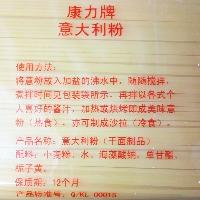 康力牌
意大利粉
使用方法：
将意粉放入加盐的沸水中，随随搅拌，
煮拌时间见包装袋所示，再拌以各式个
人喜好的酱汁，加热或烘烤即成美味意
粉（热食），亦可制成沙拉（冷食）。
产品名称：意大利粉（干面制品）
配料：小麦粉、水、海藻酸钠、单甘酯、
栀子黄。
保质期：12个月
产品标准号：Q/KL 0001S